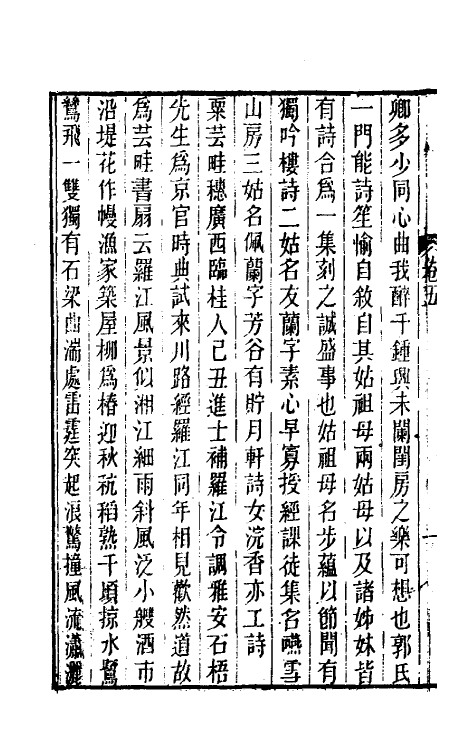 卿多少同心曲我醉千鍾興未闌閨房之樂可想也郭氏
一門能詩笙愉自敘自其姑祖母兩姑母以及諸姊妹皆
有詩合爲一集刻之誠盛事也姑祖母名步蘊以節聞有
獨吟樓詩二姑名友蘭字素心早寡授經課徒集名嚥雪
山房三姑名佩蘭字芳谷有貯月軒詩女浣香亦工詩
粟芸畦穗廣西臨桂人己丑進士補羅江令調雅安石梧
先生爲京官時典試來川路經羅江同年相見歡然道故
爲芸畦書扇云羅江風景似湘江細雨斜風泛小艭酒市
沿堤花作幔漁家築屋柳爲樁迎秋秔稻熟千頃掠水鴛
鴦飛一雙獨有石梁曲湍處雷霆突起浪驚撞風流瀟灑
卷五
一